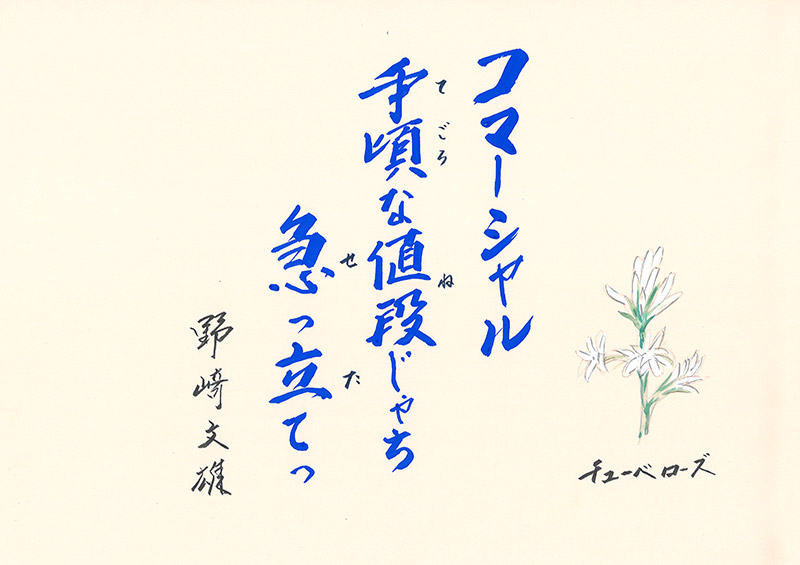 コマーシャル
手頃な値段じゃち
てごろ
ね
急っ立てっ
せ
た
野崎文雄
チューベローズ